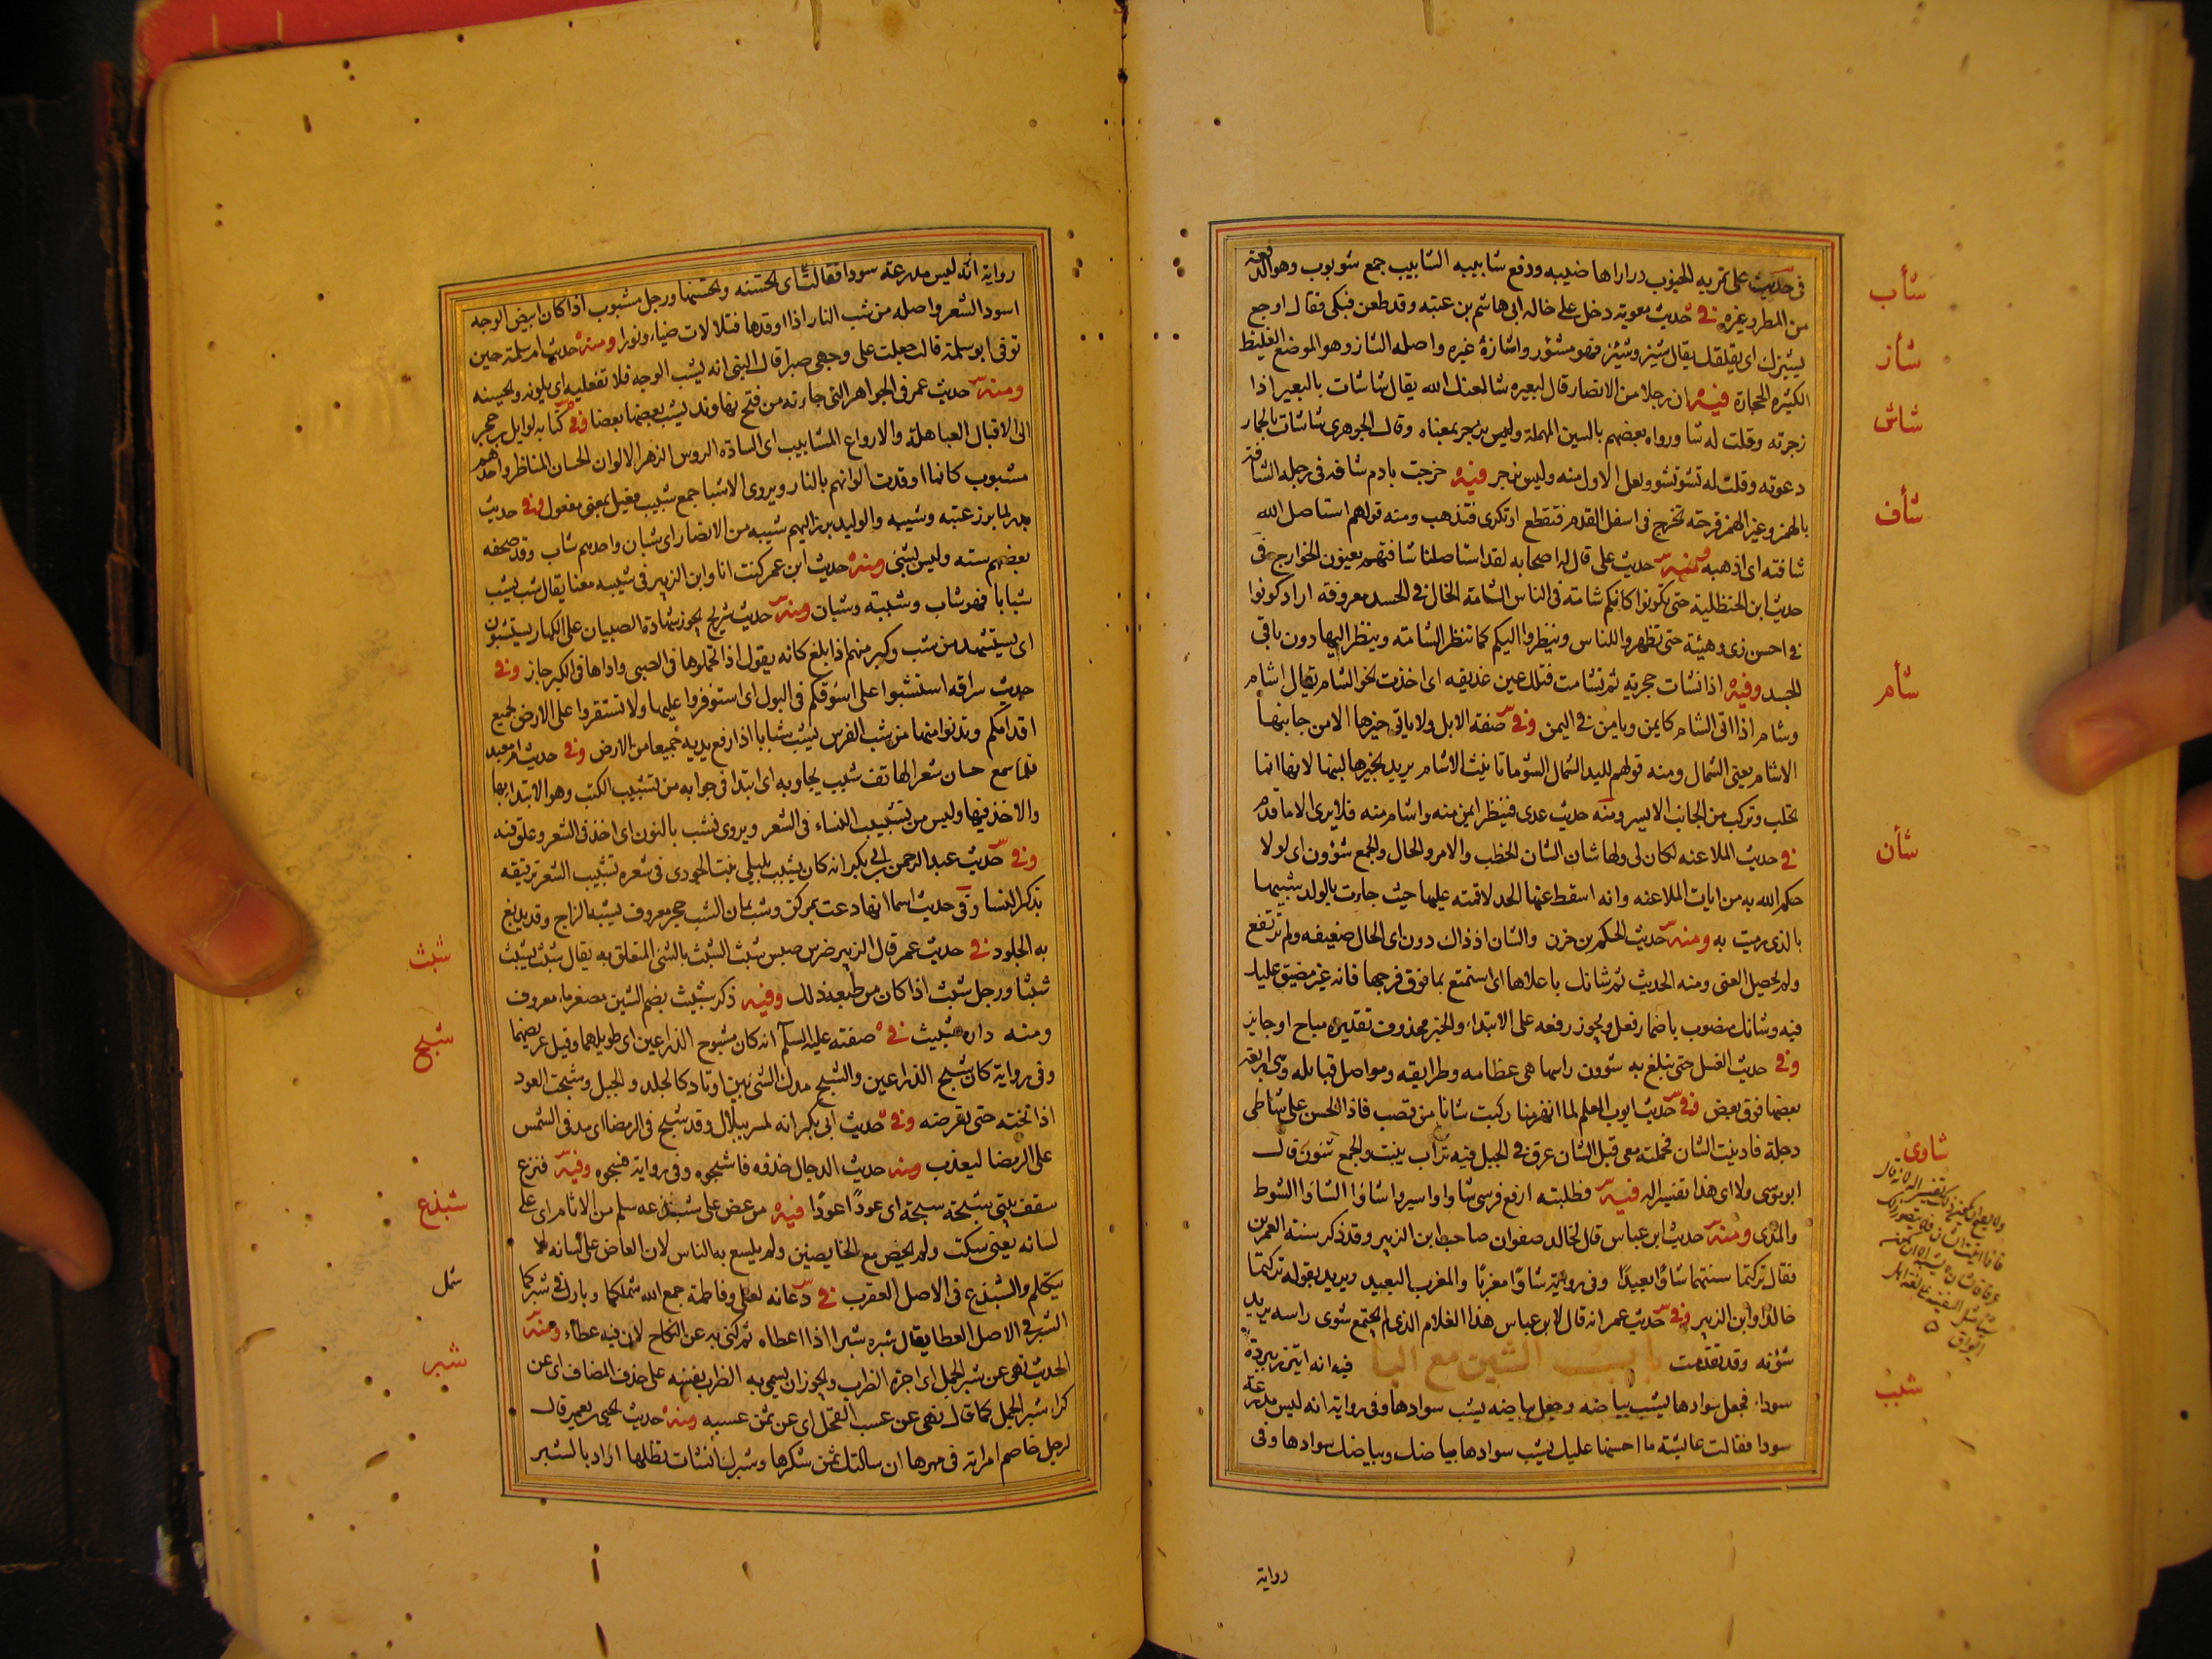 فى حديث على تمريه الجنوب درر اهاضيبه ودفع شابيبه الشابيب جمع شوبوب وهو الدفعة
من المطر وغيره فى حديث معوية دخل على خاله ابى هاشم بن عتبه وقد طعن فبكى فقال اوجع
يشيزك اى يقلقك يقال شيز وشيز فهو مشئوز واشازه غيره واصله الشاز وهو الموضع الغليظ
الكثير الحجارة فيه ان رجلا من الانصار قال لبعيره شا لعنك الله يقال شاشات بالبعير اذا
زجرته وقلت له شا ورواه بعضهم بالسين المهملة وليس بزجر بمعناه وقال الجوهرى شاشات بالحمار
دعوته وقلت له تشؤتشؤ ولعل الاول منه وليس بزجر فيه خرجت بادم شافه فى رجله الشافة
بالهمز وغير الهمز قرحه تخرج فى اسفل القدم فتقطع او تكوى فتذهب ومنه قولهم استاصل الله
شافته اى اذهبه ومنه حديث على قال له اصحابه لقد استاصلنا شافتهم يعنون الخوارج فى
حديث ابن الحنظلية حتى تكونوا كانكم شامة فى الناس الشامة الخال فى الجسد معروفة اراد كونوا
فى احسن زى وهيئة حتى تظهروا للناس وينظروا اليكم كما تنظر الشامة وينظر اليها دون باقى
الجسد وفيه اذا نشات حجرية ثم تشامت فتلك عين غديقه اى اخذت نحو الشام يقال اشام
وشام اذا اتى الشام كايمن ويامن فى اليمن وفى صفة الابل ولا ياتى خيرها الا من جانبها
الاشام يعنى الشمال ومنه قولهم لليد الشمال الشؤما تانيث الاشام يريد بخيرها لبنها لانها انما
تحلب وتركب من الجانب الايسر ومنه حديث عدى فينظر ايمن منه واشام منه فلا يرى الا ما قدم
فى حديث الملاعنه لكان لى ولها شان الشان الخطب والامر والحال والجمع شؤون اى لولا
حكم الله به من ايات الملاعنه وانه اسقط عنها الحد لاقمته عليها حيث جاءت بالولد شبيها
بالذى رميت به ومنه حديث الحكم بن حزن والشان اذ ذاك دون اى الحال ضعيفه ولم ترتفع
ولم يحصل الغنى ومنه الحديث ثم شانك باعلاها اى استمتع بما فوق فرجها فانه غير مضيق عليك
فيه وشانك منصوب باضمار فعل ويجوز رفعه على الابتداء والخبر محذوف تقديره مباح او جايز
وفى حديث الغسل حتى تبلغ به شؤون راسها هى عظامه وطرايقه ومواصل قبايله وهى اربعة
بعضها فوق بعض وفى حديث ايوب المعلم لما انهزمنا ركبت شانا من قصب فاذا الحسن على شاطى
دجلة فادنيت الشان فحملته معى قيل الشان عرق فى الجبل فيه تراب ينبت والجمع شئون قال
ابو موسى ولا ارى هذا تفسيرا له فيه فطلبته ارفع فرسى شاوا واسير شاوا الشاوا الشوط
والمدى ومنه حديث ابن عباس قال لخالد بن صفوان صاحب ابن الزبير وقد ذكر سنة العمرين
فقال تركتما سنتهما شاوا بعيدا وفى رواية شاوا مغربا والمغرب البعيد ويريد بقوله تركتما
خالدا وابن الزبير وفى حديث عمر انه قال لابن عباس هذا الغلام الذى لم يجتمع شوى راسه يريد
شؤنه وقد تقدمت باب الشين مع البا فيه انه ايتزر ببردة
سودا فجعل سوادها يشب بياضه وجعل بياضه يشب سوادها وفى رواية انه لبس مدرعة
سودا فقالت عايشة ما احسنها عليك يشب سوادها بياضك وبياضك سوادها وفى
رواية
شأب
شأز
شاش
شأف
شأم
شأن
شاوى
شبب
رواية انه لبس مدرعة سودا فقالت اى تحسنه ويحسنها ورجل مشبوب اذا كان ابيض الوجه
اسود الشعر واصله من شب النار اذا اوقدها فتلالات ضياء ونورا ومنه حديث ام سلمة حين
توفى ابو سلمة قالت جعلت على وجهى صبرا قال النبى انه يشب الوجه فلا تفعليه اى يلونه ويحسنه
ومنه حديث عمر فى الجواهر التى جاءته من فتح نهاوند يشب بعضها بعضا وفى كتابه لوايل بن حجر
الى الاقيال العباهلة والارواع المشابيب اى السادة الروس الزهر الالوان الحسان المناظر واحدهم
مشبوب كانما اوقدت الوانهم بالنار ويروى الاشبا جمع شبيب فعيل بمعنى مفعول وفى حديث
بدر لما برز عتبه وشيبه والوليد برز اليهم شببه من الانصار اى شبان واحدهم شاب وقد صحفه
بعضهم ستة وليس بشى ومنه حديث ابن عمر كنت انا وابن الزبير فى شببه معنا يقال شب يشب
شبابا فهو شاب وشببة وشبان ومنه حديث شريح يجوز شهادة الصبيان على الكبار يستشبون
اى يستشهد من شب وكبر منهم اذا بلغ كانه يقول اذا تحملوها فى الصبى واداها فى الكبر جاز وفى
حديث سراقه استشبوا على اسوقكم فى البول اى استوفزوا عليها ولا تستقروا على الارض بجميع
اقدامكم وتدنوا منها من شب الفرس يشب شبابا اذا رفع يديه جميعا من الارض وفى حديث ام معبد
فلما سمع حسان شعر الهاتف شبب يجاوبه اى ابتدا فى جوابه من تشبيب الكتب وهو الابتدا بها
والاخذ فيها وليس من تشبيب النساء فى الشعر ويروى نشب بالنون اى اخذ فى الشعر وعلق فيه
وفى حديث عبد الرحمن بن ابى بكر انه كان يشبب بليلى بنت الجودى فى شعره تشبيب الشعر ترقيقه
بذكر النسا وفى حديث اسما انها دعت بمركن وشب يمان الشب حجر معروف يشبه الزاج وقد يدبغ
به الجلود فى حديث عمر قال الزبير ضرس ضبس شبث الشبث بالشى المتعلق به يقال شبث يشبث
شبثا ورجل شبث اذا كان من طبعه ذلك وفيه ذكر شبيث بضم الشين مصغر ماء معروف
ومنه داره شبيث فى صفته عليه السلم انه كان مشبوح الذراعين اى طويلهما وقيل عريضهما
وفى رواية كان شبح الذراعين والشبح مدك الشى بين اوتاد كالجلد والحبل وشبحت العود
اذا نحته حتى تعرضه وفى حديث ابى بكر انه مر ببلال وقد شبح فى الرمضا اى مد فى الشمس
على الرمضا ليعذب ومنه حديث الدجال خذوه فاشبحوه وفى رواية فشجوه وفيه فنزع
سقف بيتى شبحة شبحة اى عودا عودا فيه من عض على شبذعه سلم من الاثام اى على
لسانه يعنى سكت ولم يخض مع الخايضين ولم يلسع به الناس لان العاض على لسانه لا
يتكلم والشبذع فى الاصل العقرب فى دعائه لعلى وفاطمة جمع الله شملكما وبارك فى شبركما
الشبر فى الاصل العطا يقال شبره شبرا اذا اعطاه ثم كنى به عن النكاح لان فيه عطاء ومنه
الحديث نهى عن شبر الجمل اى اجرة الضراب ويجوز ان يسمى به الضراب نفسه على حذف المضاف اى عن
كرا شبر الجمل كما قال نهى عن عسب الفحل اى عن ثمن عسبه ومنه حديث يحيى بن يعمر قال
لرجل خاصم امراته فى مهرها ان سالتك ثمن شكرها وشبرك انشات تطلها اراد بالشبر
شبث
شبح
شبذع
شمل
شبر